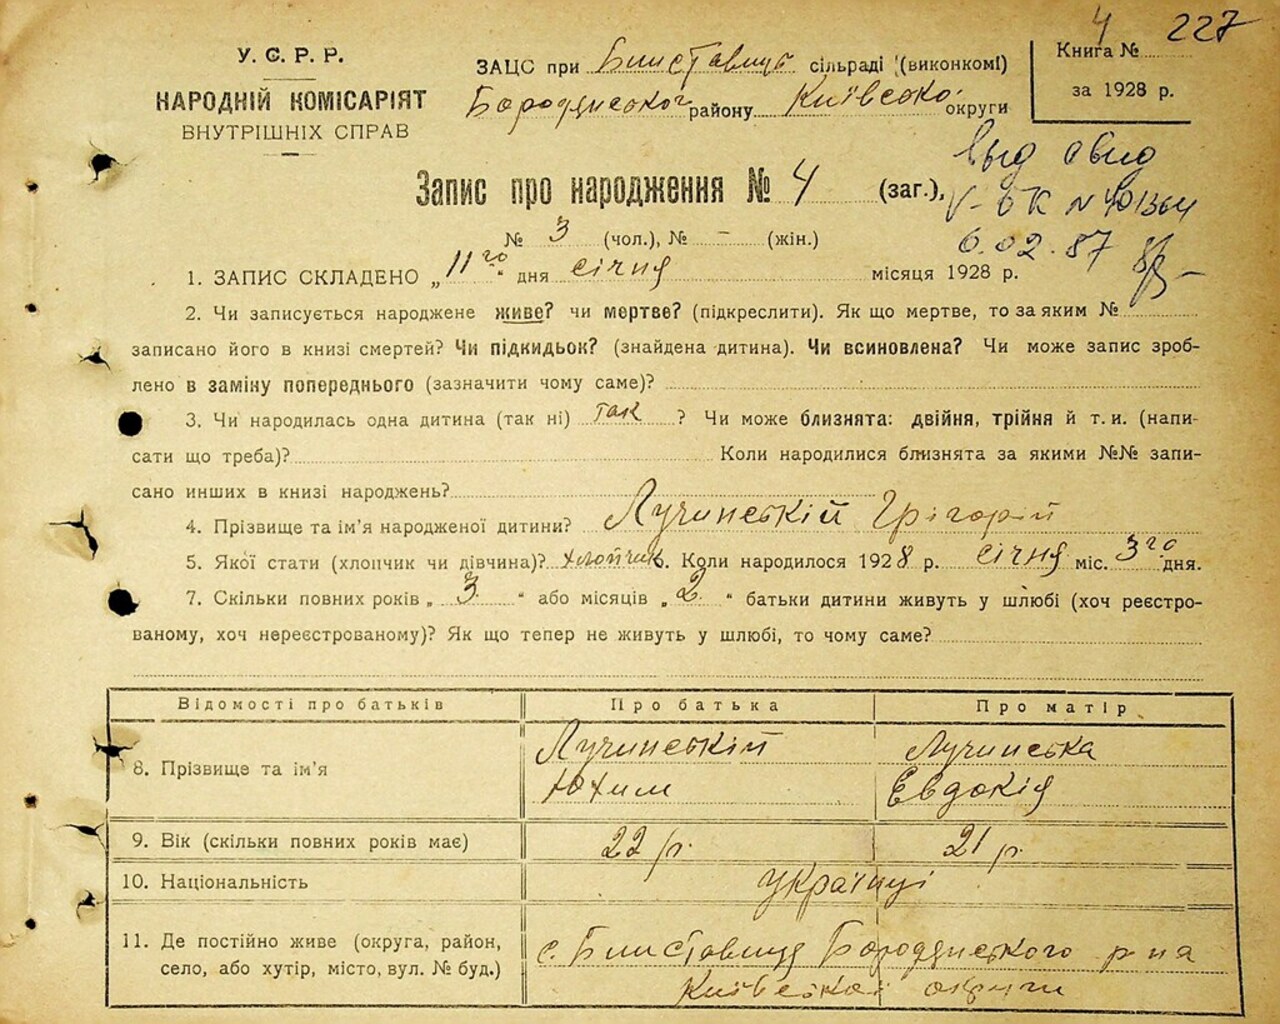 4 227
У. С. Р. Р.
НАРОДНІЙ КОМІСАРІЯТ
ВНУТРІШНІХ СПРАВ
ЗАЦС при Блиставиця сільраді (виконкомі)
Бородянського району Київської округи
Книга №
за 1928 р.
Выд свид
V-БК N 401364
6.02.87
Запис про народження № 4 (заг.),
№ 3 (чол.), № – (жін.)
1. ЗАПИС СКЛАДЕНО „11го“ дня січня місяця 1928 р.
2. Чи записується народжене живе? чи мертве? (підкреслити). Як що мертве, то за яким №
записано його в книзі смертей? Чи підкидьок? (знайдена дитина). Чи всиновлена? Чи може запис зроб-
лено в заміну попереднього (зазначити чому саме)?
3. Чи народилась одна дитина (так ні) так ? Чи може близнята: двійня, трійня й т. и. (напи-
сати що треба)? Коли народилися близнята за якими №№ запи-
сано инших в книзі народжень?
4. Прізвище та ім’я народженої дитини? Лучинський Грігорій
5. Якої стати (хлопчик чи дівчина)? хлопчик. Коли народилося 1928 р. січня міс. 3го дня.
7. Скільки повних років „ 3 “ або місяців „ 2 “ батьки дитини живуть у шлюбі (хоч реєстро-
ваному, хоч нереєстрованому)? Як що тепер не живуть у шлюбі, то чому саме?
Відомості про батьків Про батька Про матір
8. Прізвище та ім’я Лучинський Лучинська
Юхим Евдокія
9. Вік (скільки повних років має) 22 р. 21 р.
10. Національність українці
11. Де постійно живе (округа, район, с. Блиставиця Бородянського р на
село, або хутір, місто, вул. № буд.) Київської округи